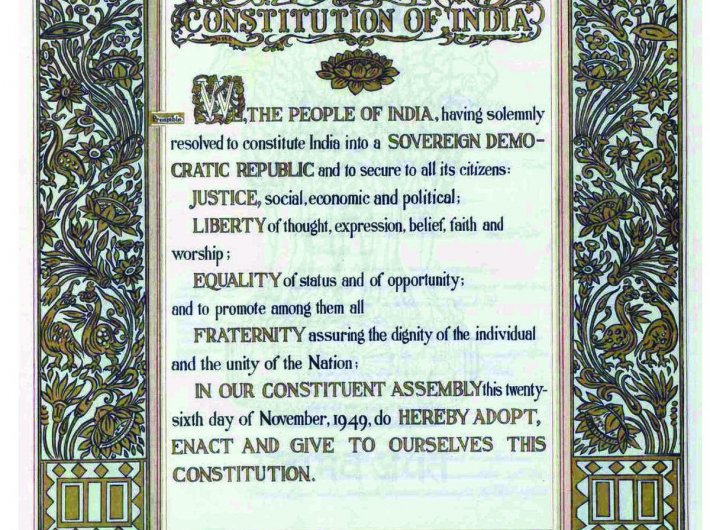 CONSTITUTION OF INDIA
Preamble
WE, THE PEOPLE OF INDIA, having solemnly
resolved to constitute India into a SOVEREIGN DEMO-
CRATIC REPUBLIC and to secure to all its citizens:
JUSTICE, social, economic and political;
LIBERTY of thought, expression, belief, faith and
worship;
EQUALITY of status and of opportunity;
and to promote among them all
FRATERNITY assuring the dignity of the individual
and the unity of the Nation;
IN OUR CONSTITUENT ASSEMBLY this twenty-
sixth day of November, 1949, do HEREBY ADOPT,
ENACT AND GIVE TO OURSELVES THIS
CONSTITUTION.